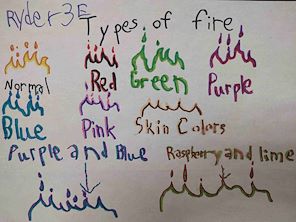 Ryder 3E
Types of fire
Normal
Red
Green
Purple
Blue
Pink
Skin Colors
Purple and Blue
Raspberry and lime